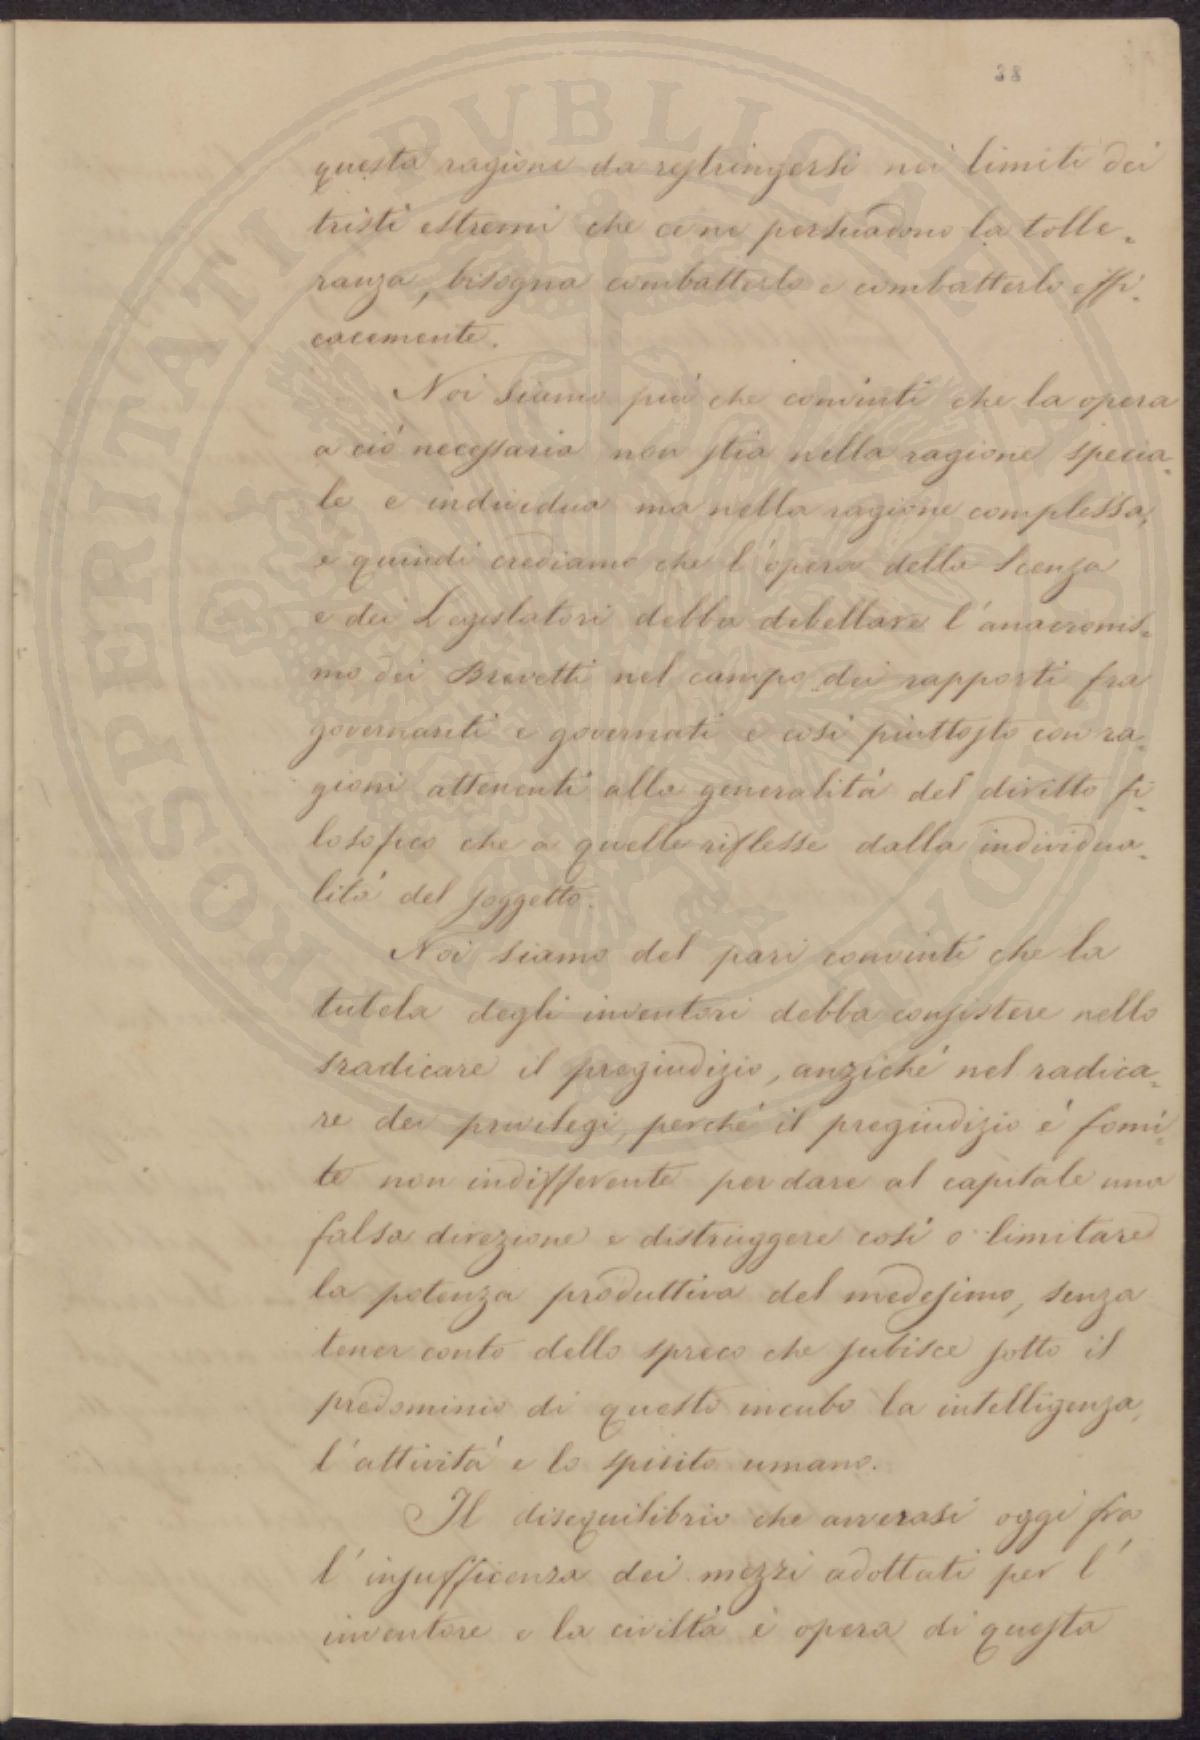 38
questa ragione da restringersi nei limiti dei
tristi estremi che ce ne persuadono la tolle-
ranza, bisogna combatterlo e combatterlo effi-
cacemente.
Noi siamo più che convinti che la opera
a ciò necessaria non stia nella ragione specia-
le e individua ma nella ragione complessa,
e quindi crediamo che l'opera della Scenza
e dei Legislatori debba debellare l'anacronis-
mo dei Brevetti nel campo dei rapporti fra
governanti e governati e così piuttosto con ra-
gioni attenenti alla generalità del diritto fi-
losofico che a quelle riflesse dalla individua-
lità del soggetto.
Noi siamo del pari convinti che la
tutela degli inventori debba consistere nello
sradicare il pregiudizio, anziché nel radica-
re dei privilegi, perché il pregiudizio è fomi-
te non indifferente per dare al capitale una
falsa direzione e distruggere così o limitare
la potenza produttiva del medesimo, senza
tener conto dello spreco che subisce sotto il
predominio di questo incubo la intelligenza,
l'attività e lo spirito umano.
Il disequilibrio che avverasi oggi fra
l'insufficenza dei mezzi adottati per l'
inventore e la civiltà è opera di questa
PROSPERITATI PUBLICAE